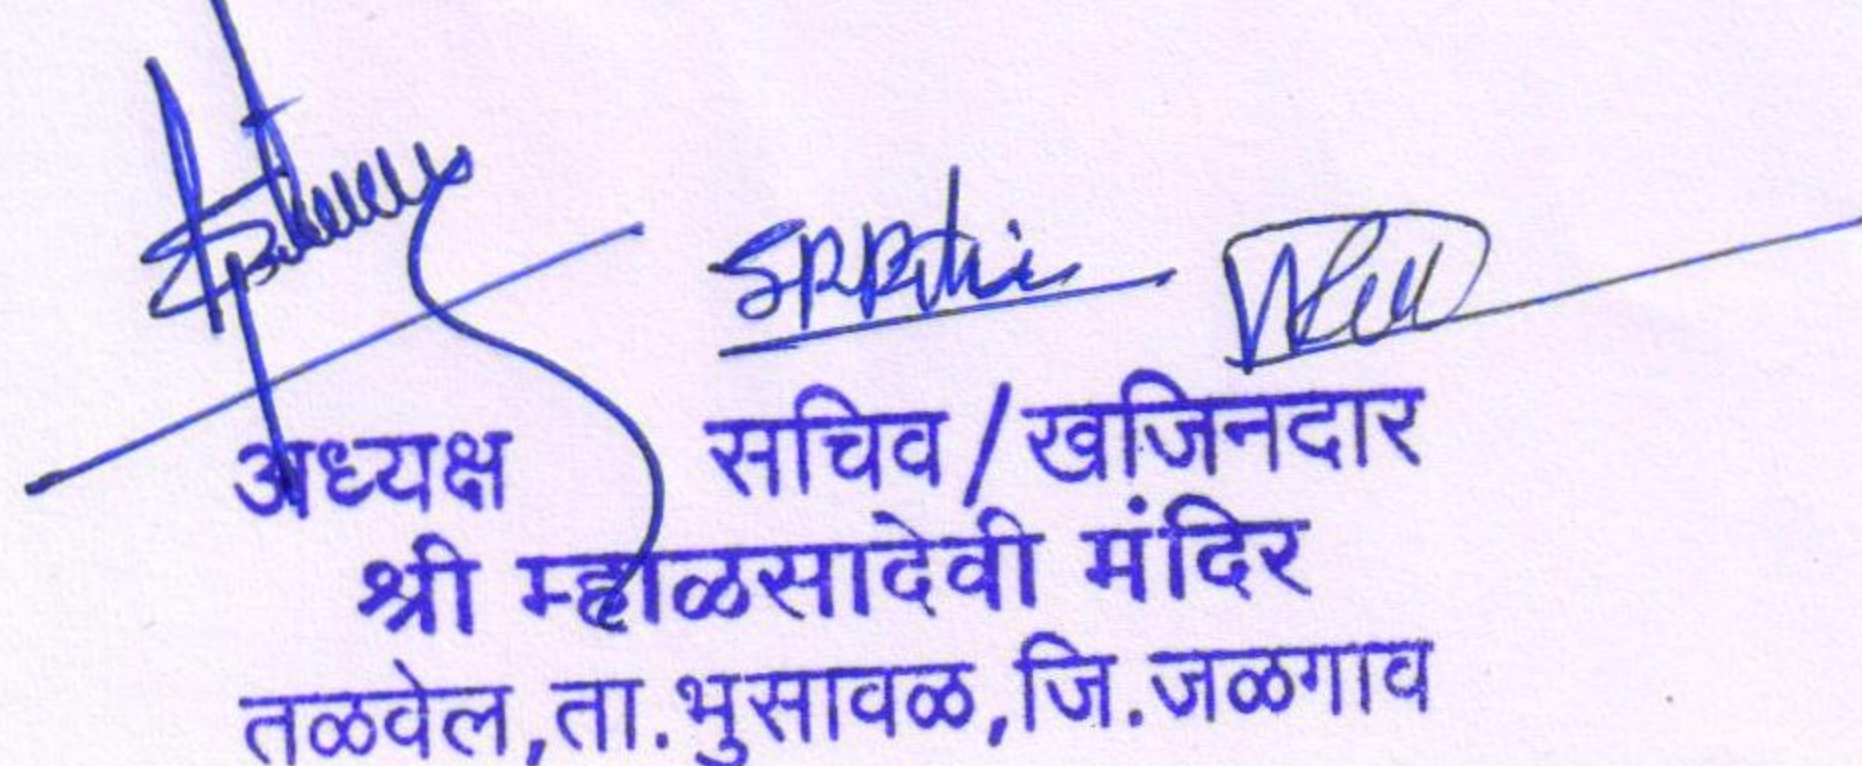 अध्यक्ष सचिव/खजिनदार
श्री म्हाळसादेवी मंदिर
तळवेल,ता.भुसावळ,जि.जळगाव